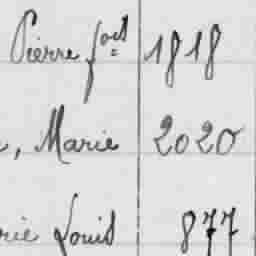 Pierre foct 1818
, Marie 2020
rie Louis 877